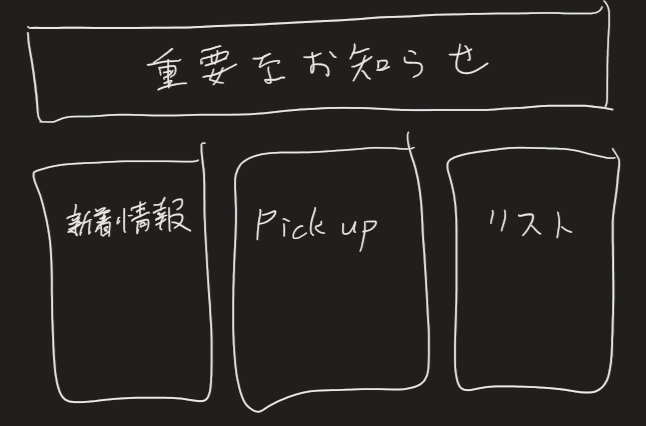 重要なお知らせ
新着情報
Pick up
リスト